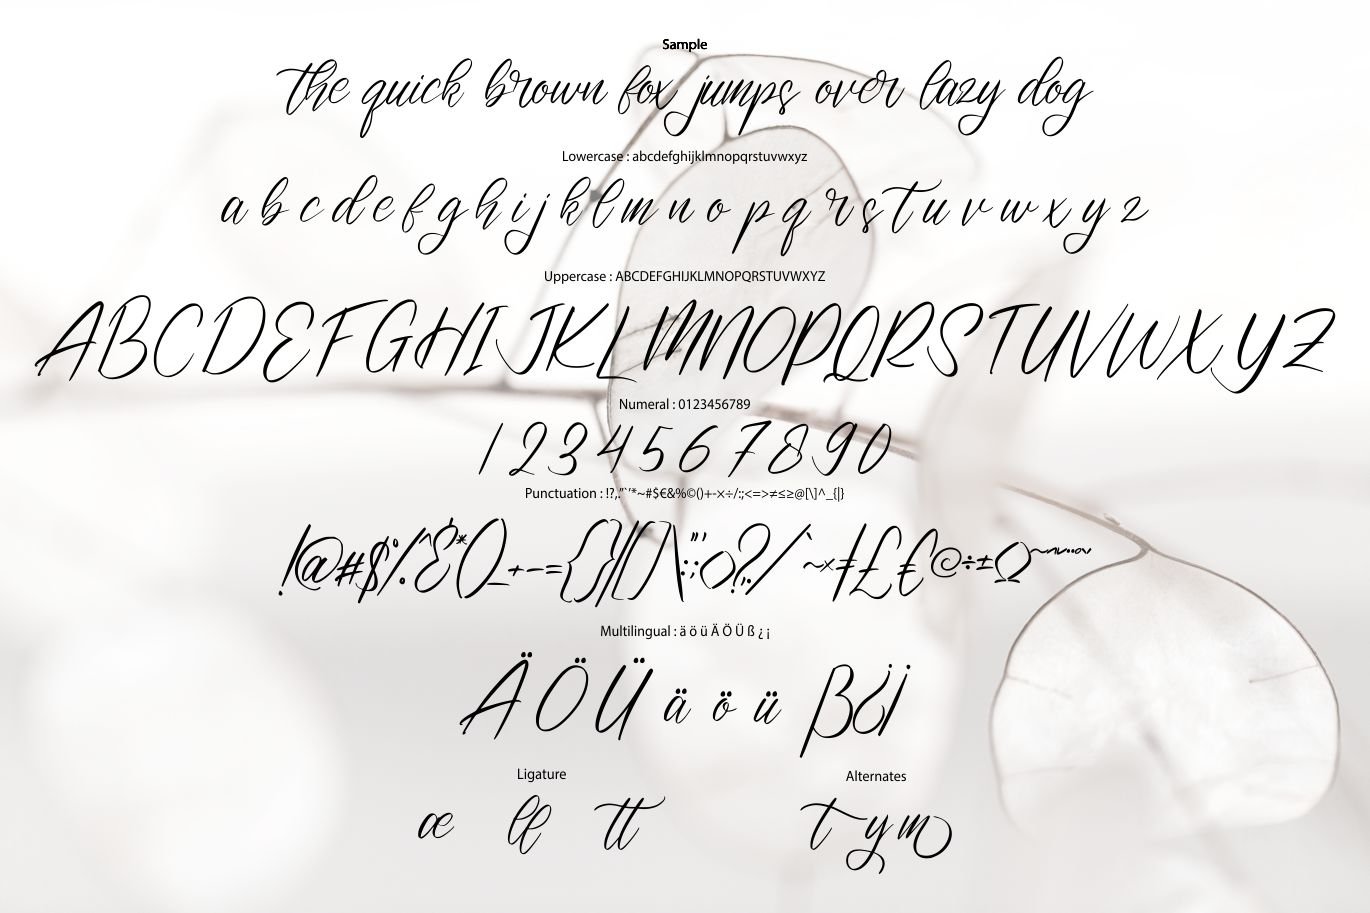 Sample
the quick brown fox jumps over lazy dog
Lowercase : abcdefghijklmnopqrstuvwxyz
a b c d e f g h i j k l m n o p q r s t u v w x y z
Uppercase : ABCDEFGHIJKLMNOPQRSTUVWXYZ
A B C D E F G H I J K L M N O P Q R S T U V W X Y Z
Numeral : 0123456789
1 2 3 4 5 6 7 8 9 0
Punctuation : !?,."`'*~#$€&%©()+-×÷/:;<=>≠≤≥@[\]^_{|}
!@#$%^&*()_+-={}|[]\:;"'<>?,./`~×≠£€©÷±Ω
Multilingual : ä ö ü Ä Ö Ü ß ¿ ¡
Ä Ö Ü ä ö ü ß ¿ ¡
Ligature
Alternates
æ ll tt
t y m